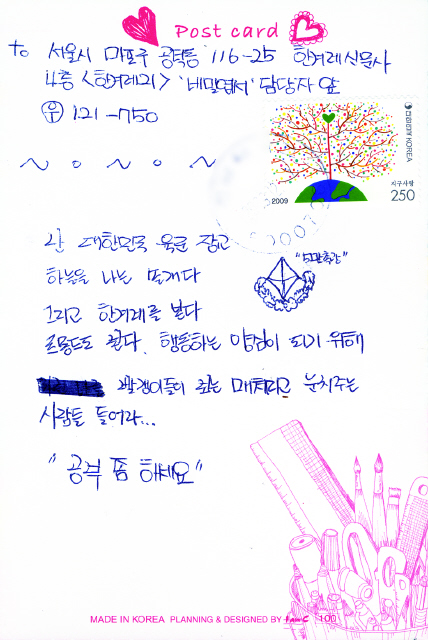 Post card
to 서울시 마포구 공덕동 116-25 한겨레신문사
4층 <한겨레21> '비밀엽서' 담당자 앞
우 121-750
대한민국 KOREA
지구사랑
2009
250
난 대한민국 육군 장교
하늘을 나는 조종사다
그리고 한겨레를 본다
촛불도 든다. 행동하는 양심이 되기 위해
빨갱이들이 보는 매체라고 눈치주는
사람들 들어라...
"공부 좀 하세요"
MADE IN KOREA PLANNING & DESIGNED BY 100